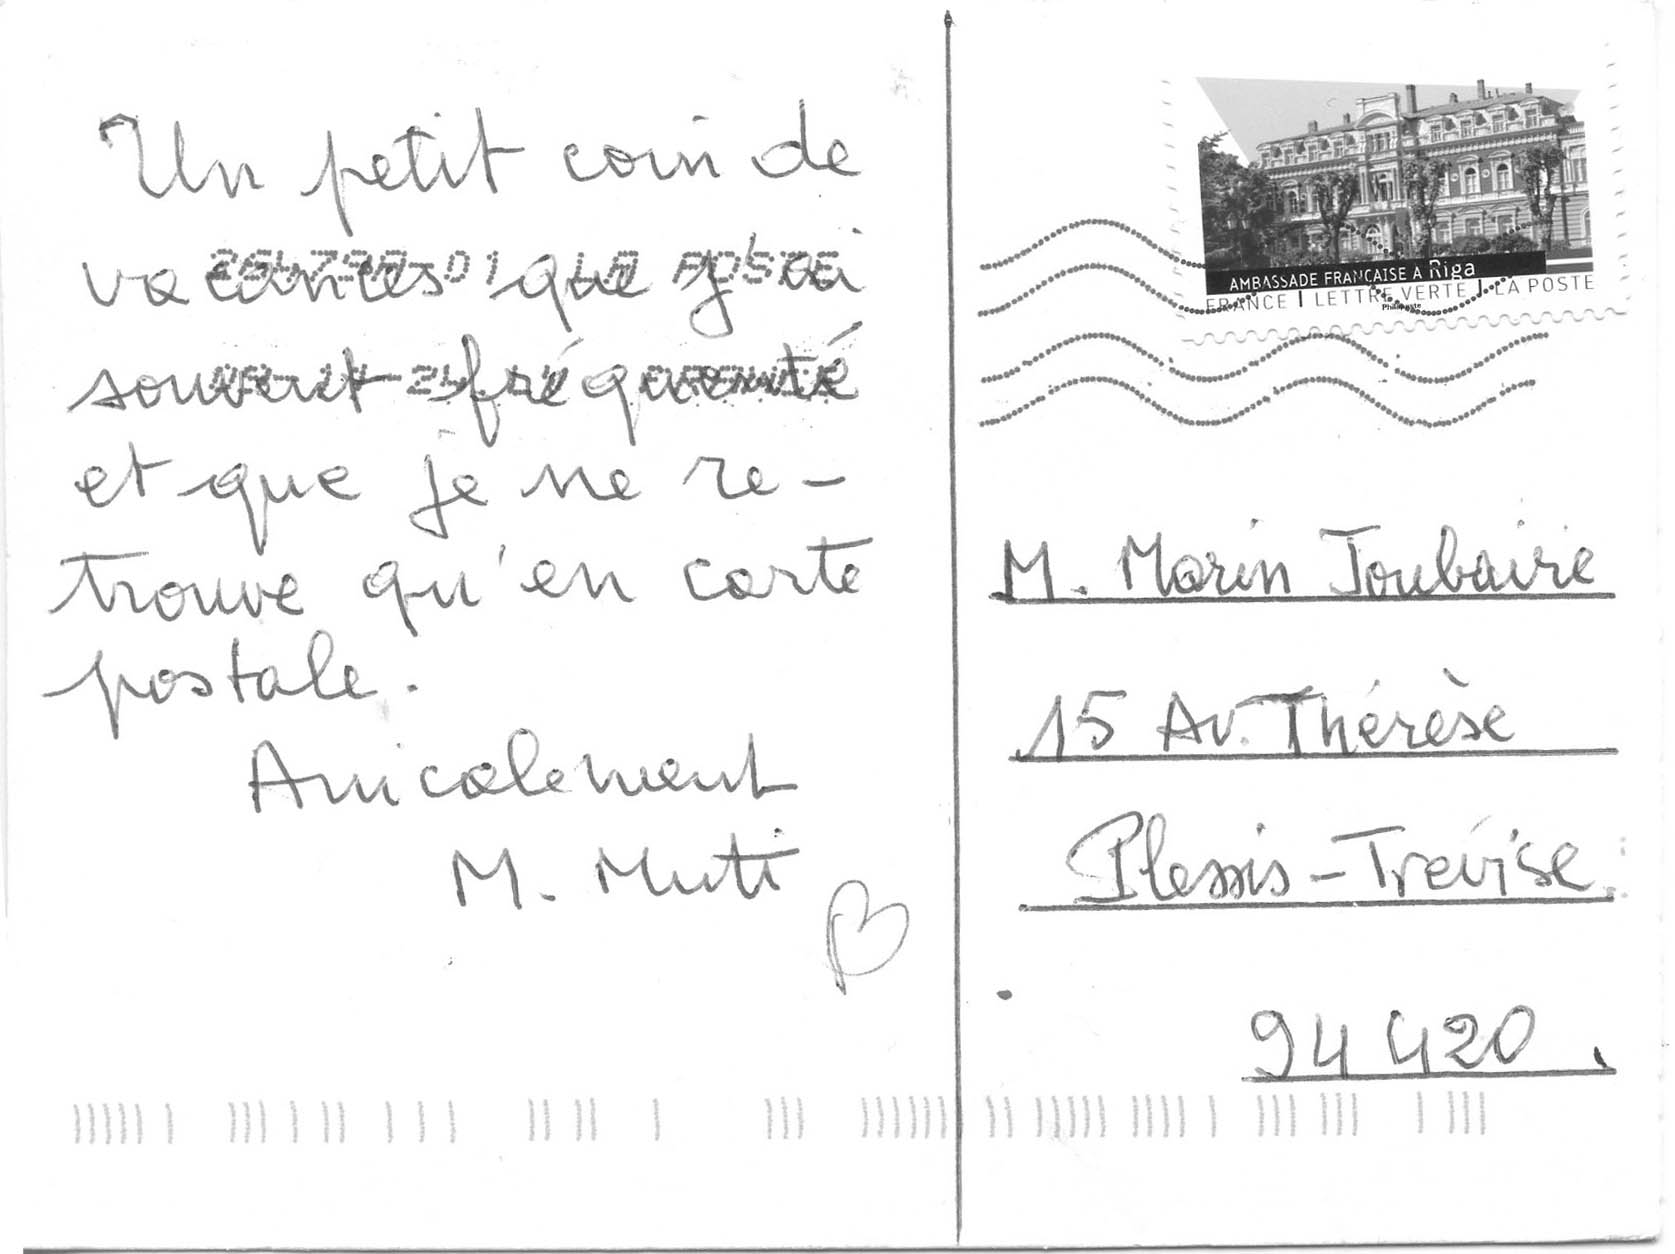 Un petit coin de
vacances que j'ai
souvent fréquenté
et que je ne re-
trouve qu'en carte
postale.
Amicalement
M. Muti
AMBASSADE FRANÇAISE A Riga
FRANCE | LETTRE VERTE | LA POSTE
Philaposte
M. Marin Joubaire
15 Av. Thérèse
Plessis-Trévise
94 420.